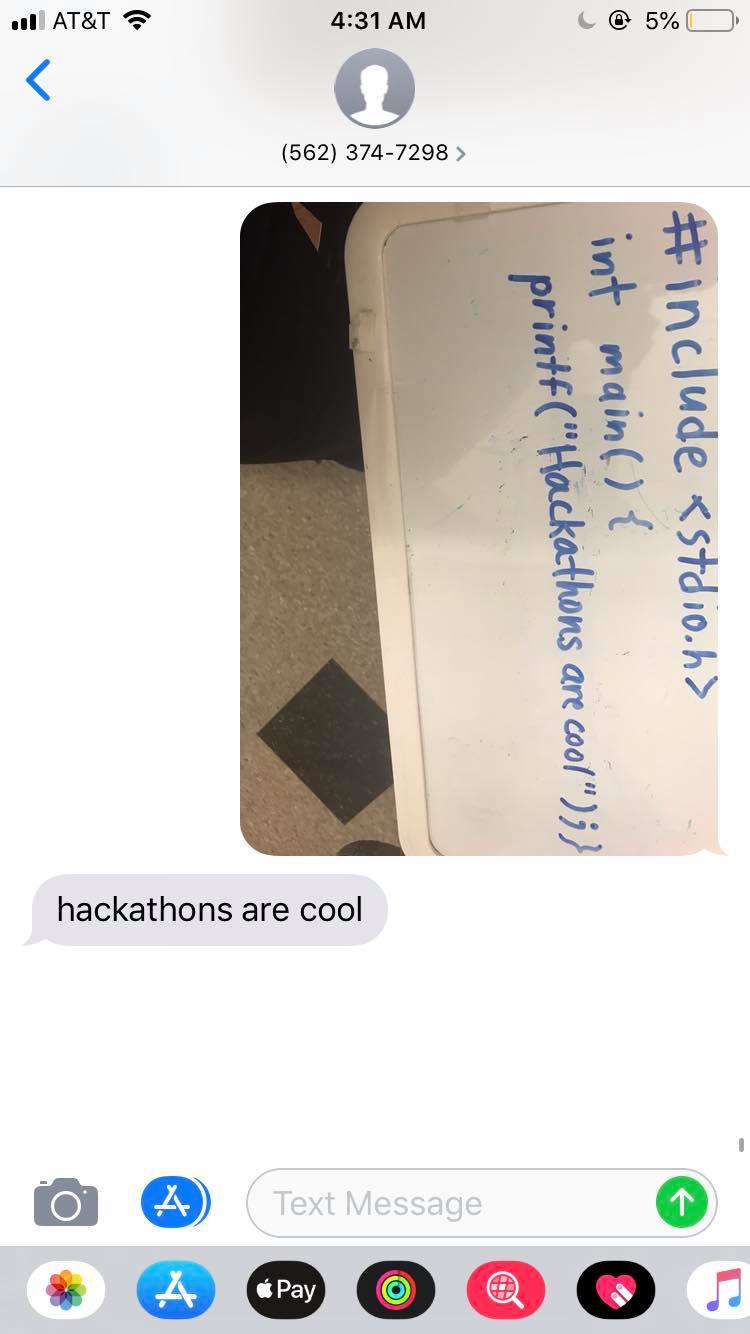 AT&T 4:31 AM 5%
(562) 374-7298 >
#include <stdio.h>
int main() {
printf("Hackathons are cool");}
hackathons are cool
Text Message
Pay